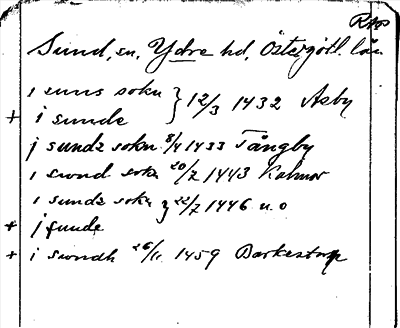 RAP
Sund, sn, Ydre hd, Östergötl. län
i suns sokn } 12/3 1432 Asby
+ i sunde
j sundz sokn 8/4 1433 Tångby
i swnd sokn 20/7 1443 Kalmar
i sunds sokn } 22/7 1446 u.o
+ j sunde
+ i swndh 26/11 1459 Barkestorp